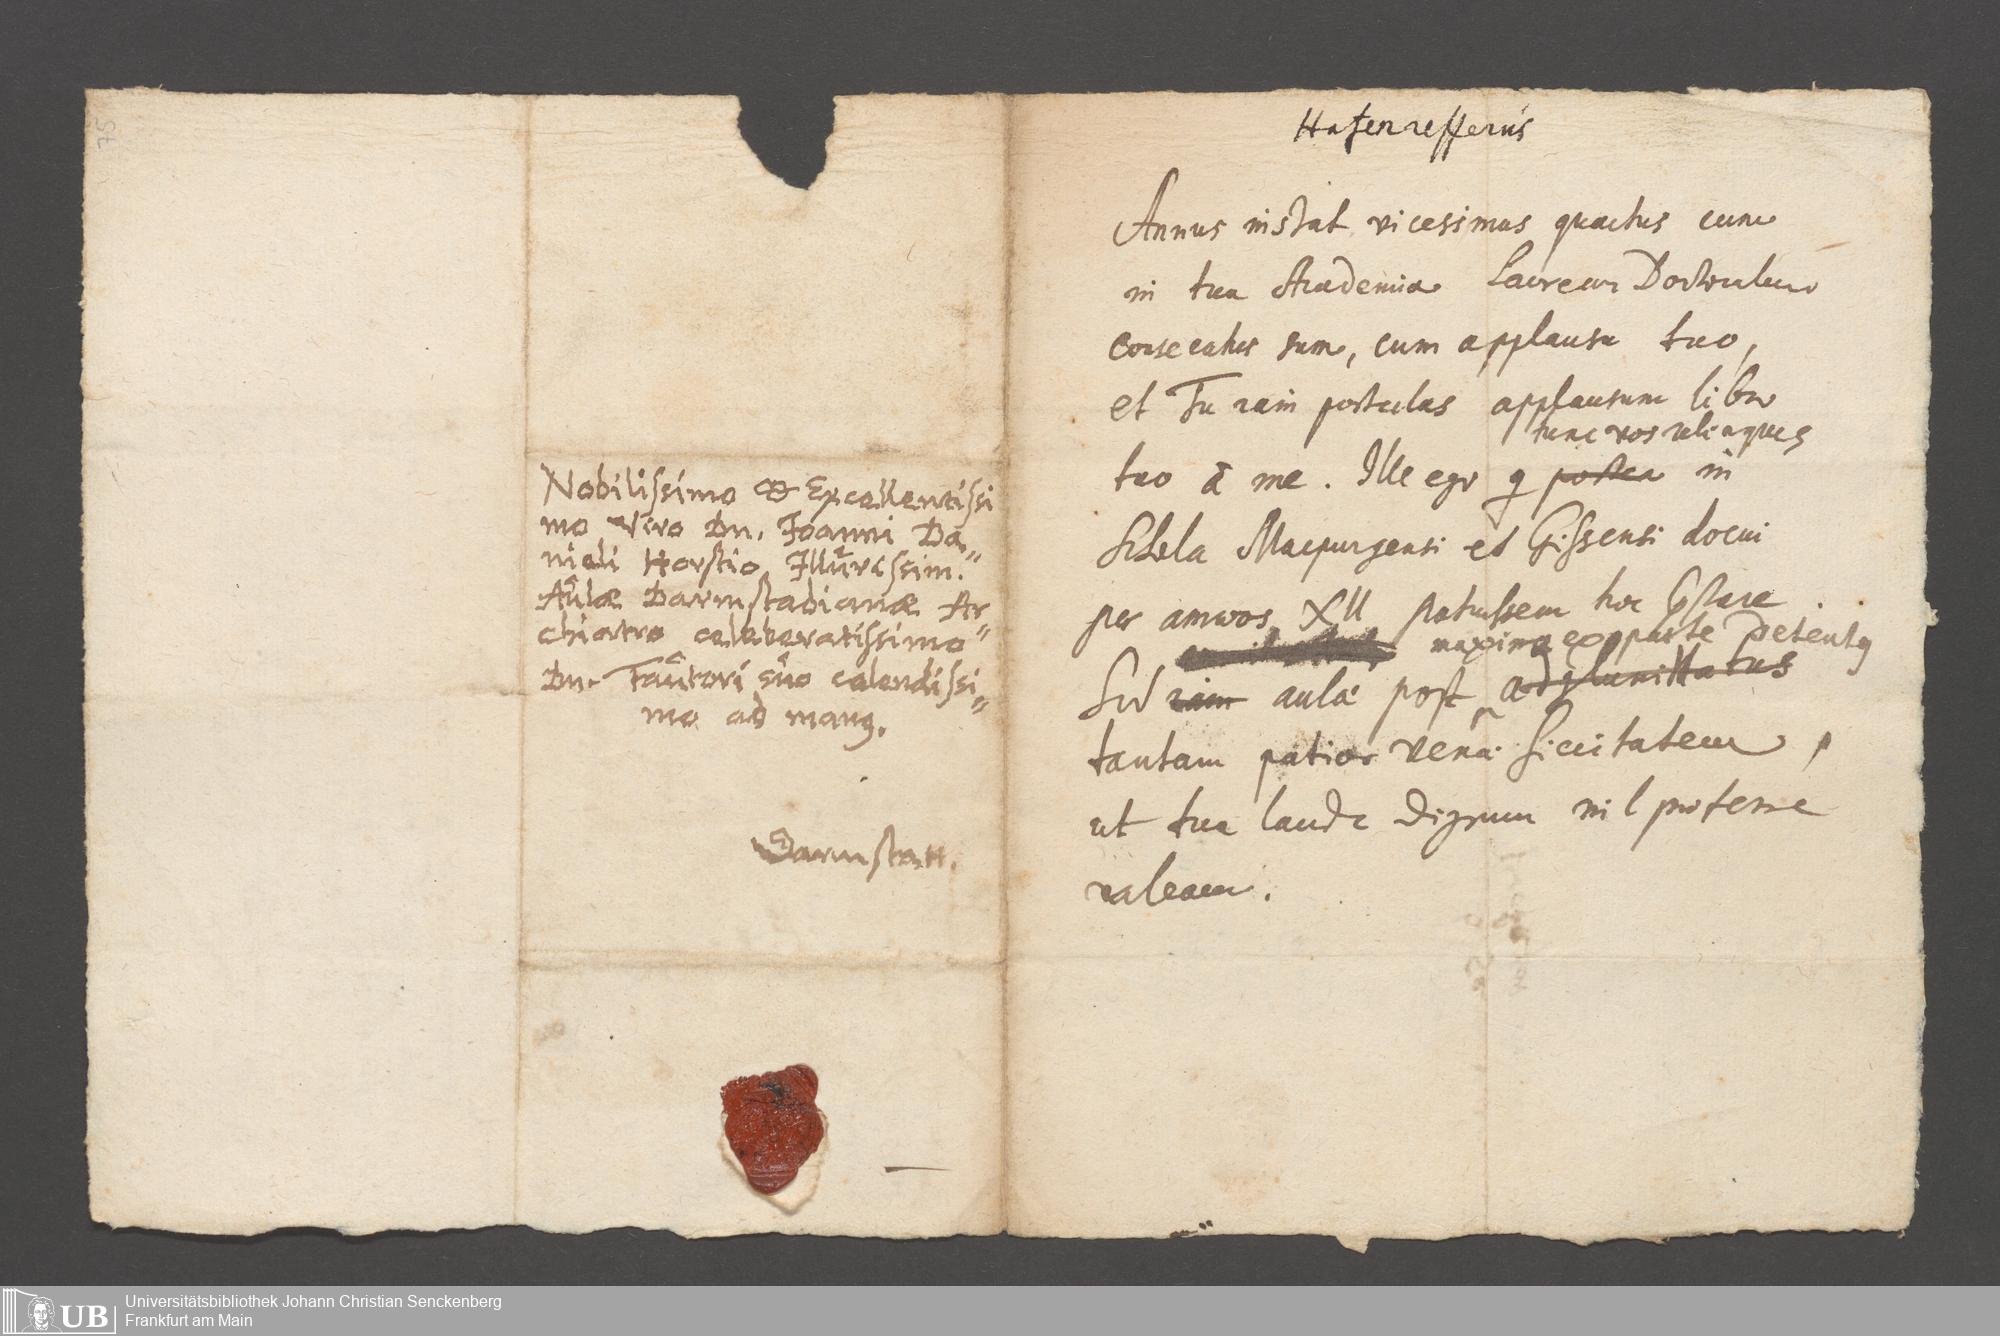 75
Nobilissimo & Excellentissi
mo Viro Dn. Joanni Da,,
nieli Horstio Illustrissim.
Aulæ Darmstadianæ Ar
chiatro celeberatissimo
Dn. Fautori suo colendissi,,
mo ad manq.
Darmstatt.
Hafenrefferus
Annus instat vicesimus quartus cum
in tua Academia Lauream Doctoralem
consecutus sum, cum applausu tuo,
et Tu iam postulas applausum libro
tunc vos relinques
tuo à me. Ille ego q postea in
Schola Marpurgensi et Gissensi docui
per annos XII potuissem hoc pstare
maxima ex parte detentq
Sed iam aulâ post
tantam patior venæ siccitatem,
ut tua laude dignum nil proferre
valeam.
Universitätsbibliothek Johann Christian Senckenberg
Frankfurt am Main
UB